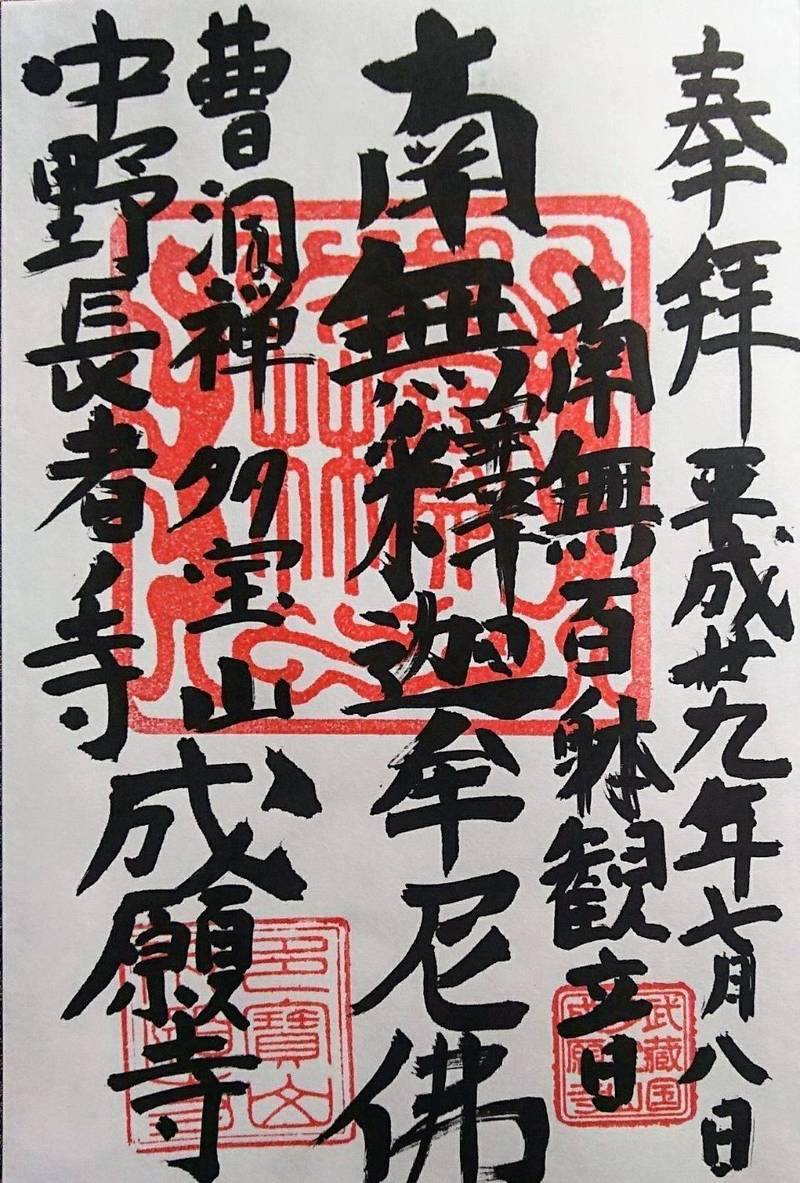 奉拝 平成廿九年七月八日
南無百躰観音
南無釋迦牟尼佛
曹洞禅 多宝山 成願寺
中野長者ノ寺
武藏国
成願寺
多寶山